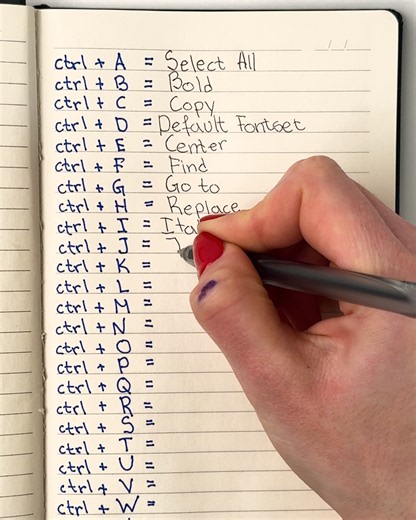 ctrl + A = Select All
ctrl + B = Bold
ctrl + C = Copy
ctrl + D = Default Fontset
ctrl + E = Center
ctrl + F = Find
ctrl + G = Go to
ctrl + H = Replace
ctrl + I =
ctrl + J =
ctrl + K =
ctrl + L =
ctrl + M =
ctrl + N =
ctrl + O =
ctrl + P =
ctrl + Q =
ctrl + R =
ctrl + S =
ctrl + T =
ctrl + U =
ctrl + V =
ctrl + W =